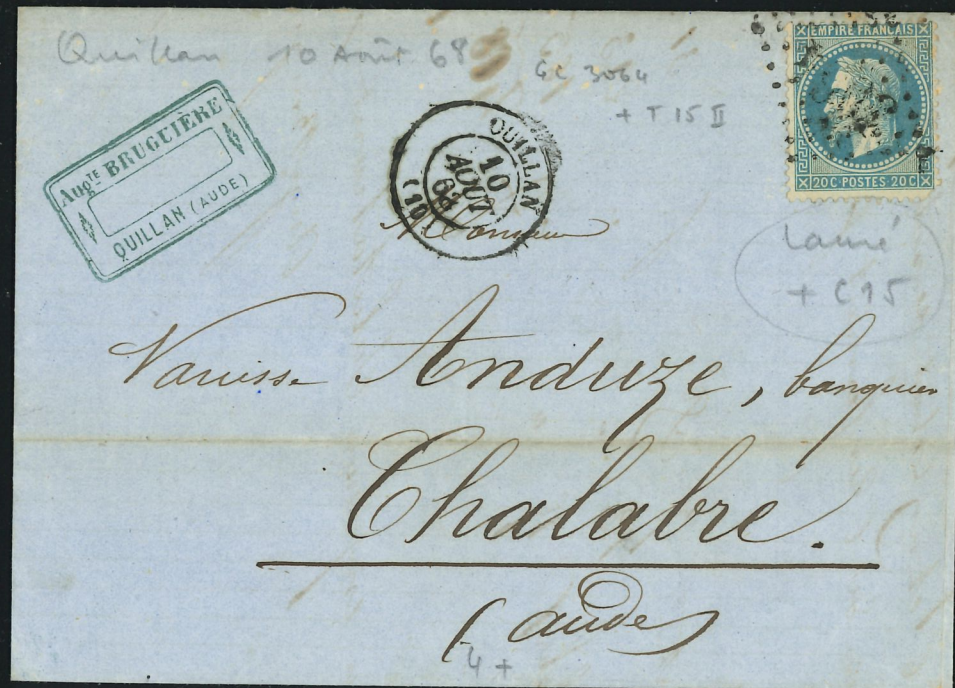 Quillan 10 Août 68
GC 3064
+ T 15 II
EMPIRE FRANÇAIS
20C·POSTES·20C
Augte BRUGUIÈRE
QUILLAN (AUDE)
QUILLAN
10
AOUT
68
(10)
Monsieur
Lauré
+ C 15
Anduze, banquier
Chalabre.
(aude)
4 +